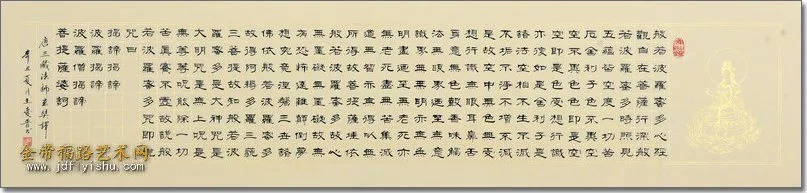 般若波羅蜜多心經
觀自在菩薩行深般
若波羅蜜多時照見
五蘊皆空度一切苦
厄舍利子色不異空
空不異色色即是空
空即是色受想行識
亦復如是舍利子是
諸法空相不生不滅
不垢不淨不增不減
是故空中無色無受
想行識無眼耳鼻舌
身意無色聲香味觸
法無眼界乃至無意
識界無無明亦無無
明盡乃至無老死亦
無老死盡無苦集滅
道無智亦無得以無
所得故菩提薩埵依
般若波羅蜜多故心
無罣礙無罣礙故無
有恐怖遠離顛倒夢
想究竟涅槃三世諸
佛依般若波羅蜜多
故得阿耨多羅三藐
三菩提故知般若波
羅蜜多是大神咒是
大明咒是無上咒是
無等等咒能除一切
苦真實不虛故說般
若波羅蜜多咒即說
咒曰
揭諦揭諦
波羅揭諦
波羅僧揭諦
菩提薩婆訶
唐三藏法師玄奘譯
金帝福路艺术网
www.jdflyishu.com